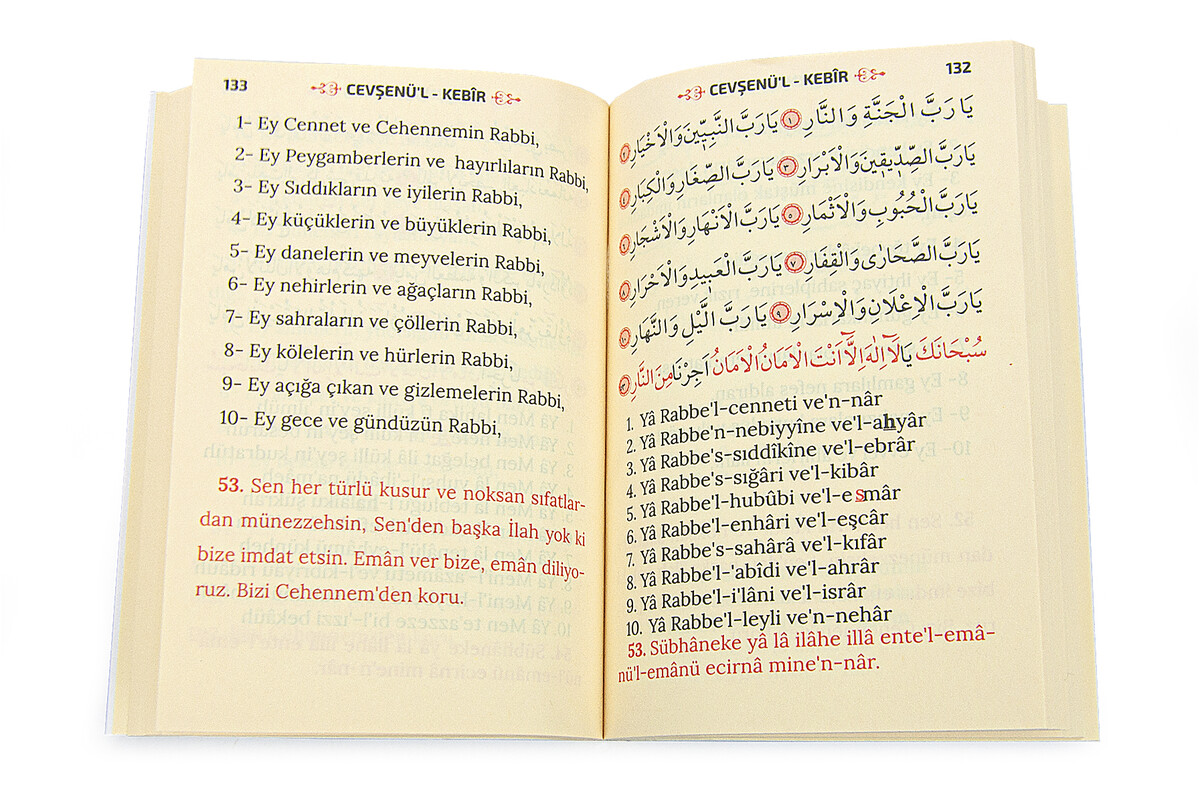 132
CEVŞENÜ'L - KEBÎR
يَا رَبَّ الْجَنَّةِ وَالنَّارِ ١ يَارَبَّ النَّبِيّ۪ينَ وَالْاَخْيَارِ ٢
يَارَبَّ الصِّدّ۪يق۪ينَ وَالْاَبْرَارِ ٣ يَارَبَّ الصِّغَارِ وَالْكِبَارِ ٤
يَارَبَّ الْحُبُوبِ وَالْاَثْمَارِ ٥ يَارَبَّ الْاَنْهَارِ وَالْاَشْجَارِ ٦
يَارَبَّ الصَّحَارٰى وَالْقِفَارِ ٧ يَارَبَّ الْعَب۪يدِ وَالْاَحْرَارِ ٨
يَارَبَّ الْاِعْلَانِ وَالْاِسْرَارِ ٩ يَا رَبَّ الَّيْلِ وَالنَّهَارِ ١٠
سُبْحَانَكَ يَا لَٓا اِلٰهَ اِلَّٓا اَنْتَ الْاَمَانُ الْاَمَانُ اَجِرْنَا مِنَ النَّارِ
1. Yâ Rabbe'l-cenneti ve'n-nâr
2. Yâ Rabbe'n-nebiyyîne ve'l-ahyâr
3. Yâ Rabbe's-sıddîkîne ve'l-ebrâr
4. Yâ Rabbe's-sığâri ve'l-kibâr
5. Yâ Rabbe'l-hubûbi ve'l-esmâr
6. Yâ Rabbe'l-enhâri ve'l-eşcâr
7. Yâ Rabbe's-sahârâ ve'l-kıfâr
8. Yâ Rabbe'l-'abîdi ve'l-ahrâr
9. Yâ Rabbe'l-i'lâni ve'l-isrâr
10. Yâ Rabbe'l-leyli ve'n-nehâr
53. Sübhâneke yâ lâ ilâhe illâ ente'l-emâ-
nü'l-emânü ecirnâ mine'n-nâr.
133
CEVŞENÜ'L - KEBÎR
1- Ey Cennet ve Cehennemin Rabbi,
2- Ey Peygamberlerin ve hayırlıların Rabbi,
3- Ey Sıddıkların ve iyilerin Rabbi,
4- Ey küçüklerin ve büyüklerin Rabbi,
5- Ey danelerin ve meyvelerin Rabbi,
6- Ey nehirlerin ve ağaçların Rabbi,
7- Ey sahraların ve çöllerin Rabbi,
8- Ey kölelerin ve hürlerin Rabbi,
9- Ey açığa çıkan ve gizlemelerin Rabbi,
10- Ey gece ve gündüzün Rabbi,
53. Sen her türlü kusur ve noksan sıfatlar-
dan münezzehsin, Sen'den başka İlah yok ki
bize imdat etsin. Emân ver bize, emân diliyo-
ruz. Bizi Cehennem'den koru.